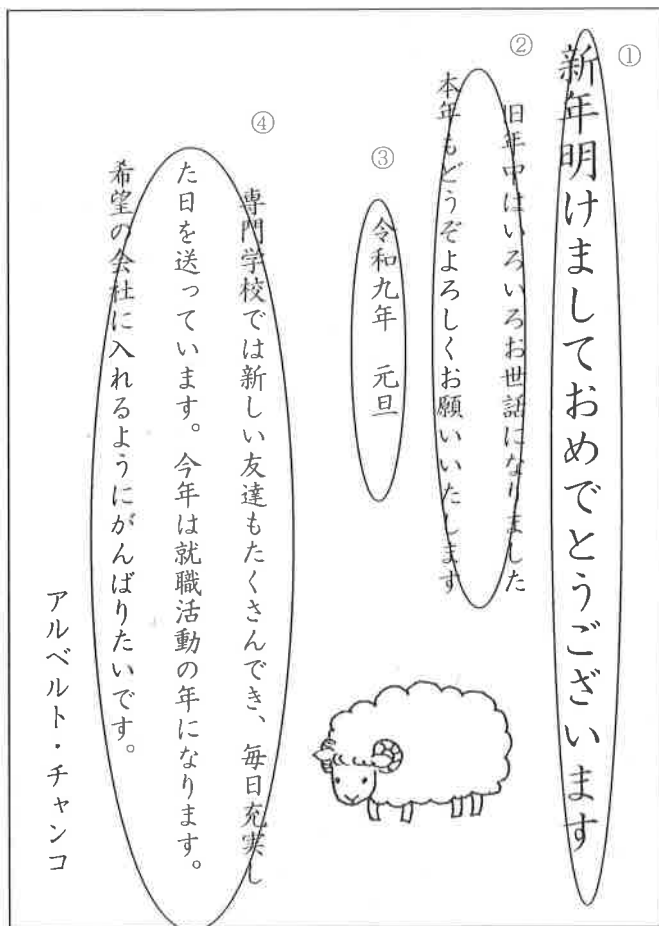 ①
新年明けましておめでとうございます
②
旧年中はいろいろお世話になりました
本年もどうぞよろしくお願いいたします
③
令和九年　元旦
④
専門学校では新しい友達もたくさんでき、毎日充実し
た日を送っています。今年は就職活動の年になります。
希望の会社に入れるようにがんばりたいです。
アルベルト・チャンコ